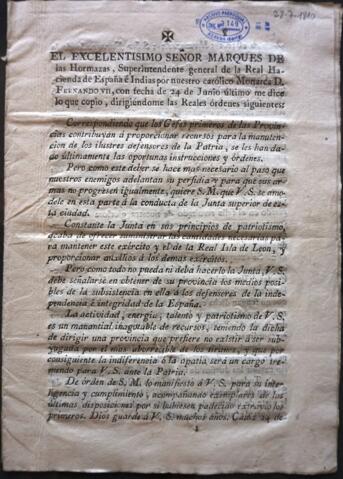 28-7-1810
149
✠
EL EXCELENTISIMO SEÑOR MARQUES DE
las Hormazas, Superintendente general de la Real Ha-
cienda de España é Indias por nuestro católico Monarca D.
FERNANDO VII, con fecha de 24 de Junio último me dice
lo que copio, dirigiéndome las Reales órdenes siguientes:
Correspondiendo que los Gefes primeros de las Provin-
cias contribuyan á proporcionar recursos para la manuten-
cion de los ilustres defensores de la Patria, se les han da-
do últimamente las oportunas instrucciones y órdenes.
Pero como este deber se hace mas necesario al paso que
nuestros enemigos adelantan su perfidia y para que sus ar-
mas no progresen igualmente, quiere S. M. que V. S. se amo-
dele en esta parte á la conducta de la Junta superior de es-
ta ciudad.
Constante la Junta en sus principios de patriotismo,
acaba de ofrecer suministrar las cantidades necesarias pa-
ra mantener este exército y el de la Real Isla de Leon, y
proporcionar auxîlios á los demas exércitos.
Pero como todo no pueda ni deba hacerlo la Junta, V. S.
debe señalarse en obtener de su provincia los medios posi-
bles de la subsistencia en ella á los defensores de la in-
dependencia é integridad de la España.
La actividad, energía, talento y patriotismo de V. S.
es un manantial inagotable de recursos, teniendo la dicha
de dirigir una provincia que prefiere no existir á ser sub-
yugada por el mas aborrecible de los tiranos, y que por
consiguiente la indiferencia ó la apatía será un cargo tre-
mendo para V. S. ante la Patria.
De órden de S. M. lo manifiesto á V. S. para su inte-
ligencia y cumplimiento, acompañando exemplares de las
últimas disposiciones por si hubiesen padecido extravío los
primeros. Dios guarde á V. S. muchos años. Cádiz 24 de